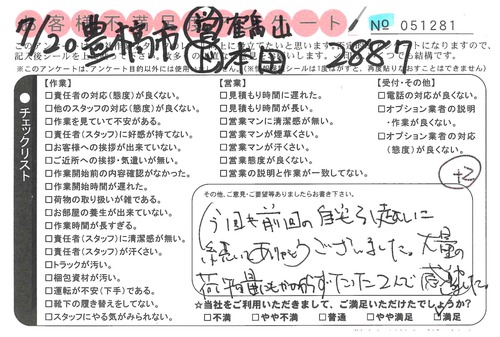 お客様不満足度アンケート
No 051281
7/20 豊橋市 営 鶴山
本田 3887
チェックリスト
【作業】
□責任者の対応(態度)が良くない。
□他のスタッフの対応(態度)が良くない。
□作業を見ていて不安がある。
□責任者(スタッフ)に好感が持てない。
□お客様への挨拶が出来ていない。
□ご近所への挨拶・気遣いが無い。
□作業開始前の内容確認がなかった。
□作業開始時間が遅れた。
□荷物の取り扱いが雑である。
□お部屋の養生が出来ていない。
□作業時間が長すぎる。
□責任者(スタッフ)に清潔感が無い。
□責任者(スタッフ)が汗くさい。
□トラックが汚い。
□梱包資材が汚い。
□運転が不安(下手)である。
□靴下の履き替えをしてない。
□スタッフにやる気がみられない。
【営業】
□見積もり時間に遅れた。
□見積もり時間が長い。
□営業マンに清潔感が無い。
□営業マンが煙草くさい。
□営業マンが汗くさい。
□営業態度が良くない。
□営業の説明と作業が一致してない。
【受付・その他】
□電話の対応が良くない。
□オプション業者の説明
・作業が良くない。
□オプション業者の対応
(態度)が良くない。
+2
その他、ご意見・ご要望等ありましたらお書き下さい。
今回も前回の自宅引越しに
続いてありがとうございました。大量の
荷物量にもかかわらず
☆当社をご利用いただきまして、ご満足いただけたでしょうか?
□不満 □やや不満 □普通 □やや満足 □満足